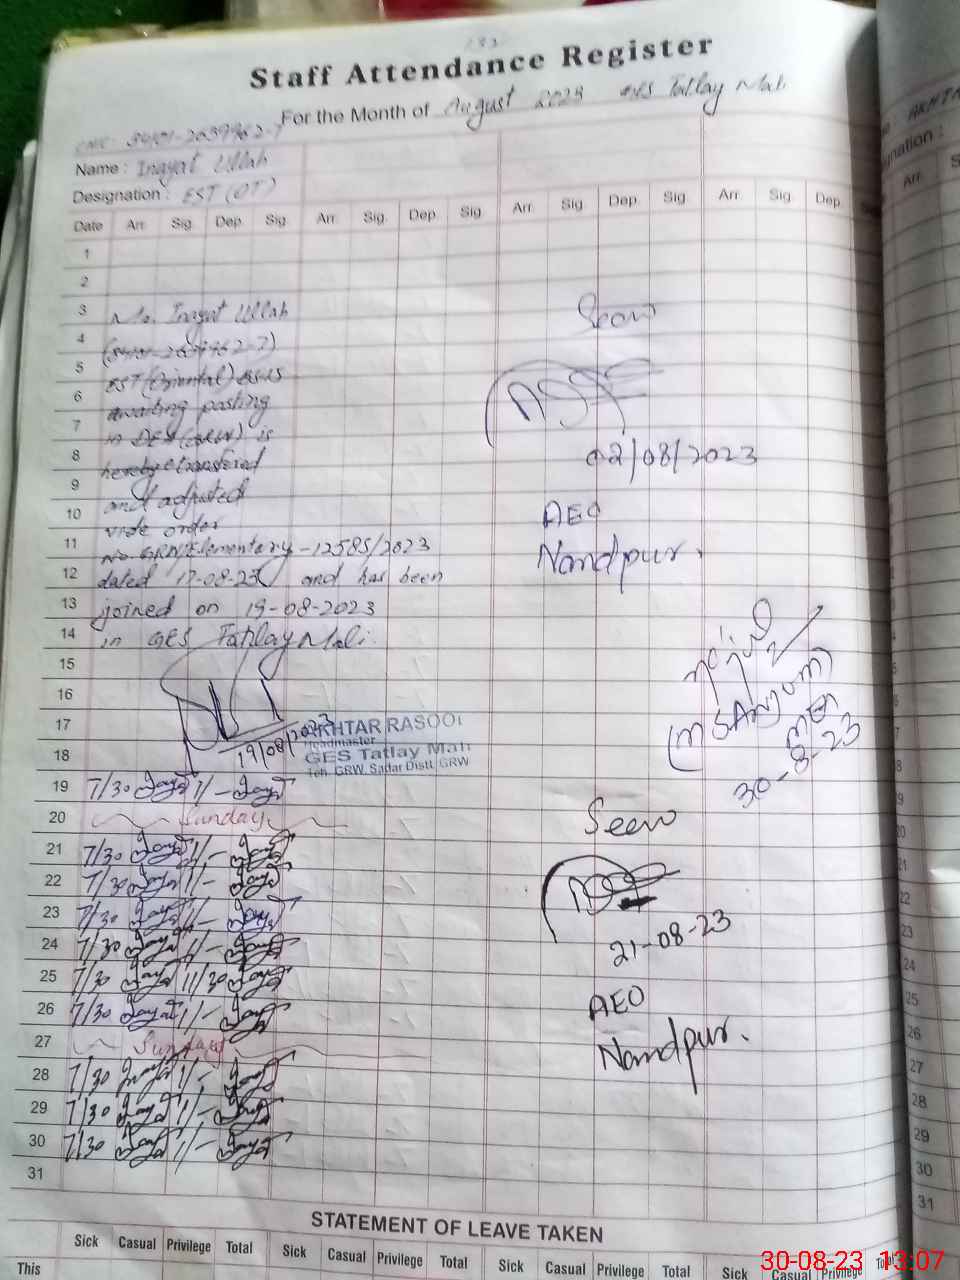 Staff Attendance Register
For the Month of August 2023 GES Tatlay Mali
CNIC: 34101-2639962-7
Name : Inayat Ullah
Designation : EST (OT)
Date Arr. Sig. Dep. Sig. Arr. Sig. Dep. Sig. Arr. Sig. Dep. Sig. Arr. Sig. Dep.
1
2
3 Mr. Inayat Ullah
4 (34101-2639962-7)
5 EST (Oriental) BS-15
6 awaiting posting
7 in DEA (GRW) is
8 hereby transfered
9 and adjusted
10 vide order
11 No. GRW/Elementary-12585/2023
12 dated 17-08-23 and has been
13 joined on 19-08-2023
14 in GES Tatlay Mali.
15
16
17
18
19/08/2023
AKHTAR RASOOL
Headmaster
GES Tatlay Mali
Teh. GRW. Sadar Distt. GRW
Seen
02/08/2023
AEO
Nandpur.
(M S Anjum)
30-8-23
19 7/30 1/-
20 Sunday
21 7/30 1/-
22 7/30 1/-
23 7/30 1/-
24 7/30 1/-
25 7/30 11/30
26 7/30 1/-
27 Sunday
28 7/30 1/-
29 7/30 1/-
30 7/30 1/-
31
Seen
21-08-23
AEO
Nandpur.
STATEMENT OF LEAVE TAKEN
Sick Casual Privilege Total Sick Casual Privilege Total Sick Casual Privilege Total Sick Casual Privilege Total
This
30-08-23 13:07